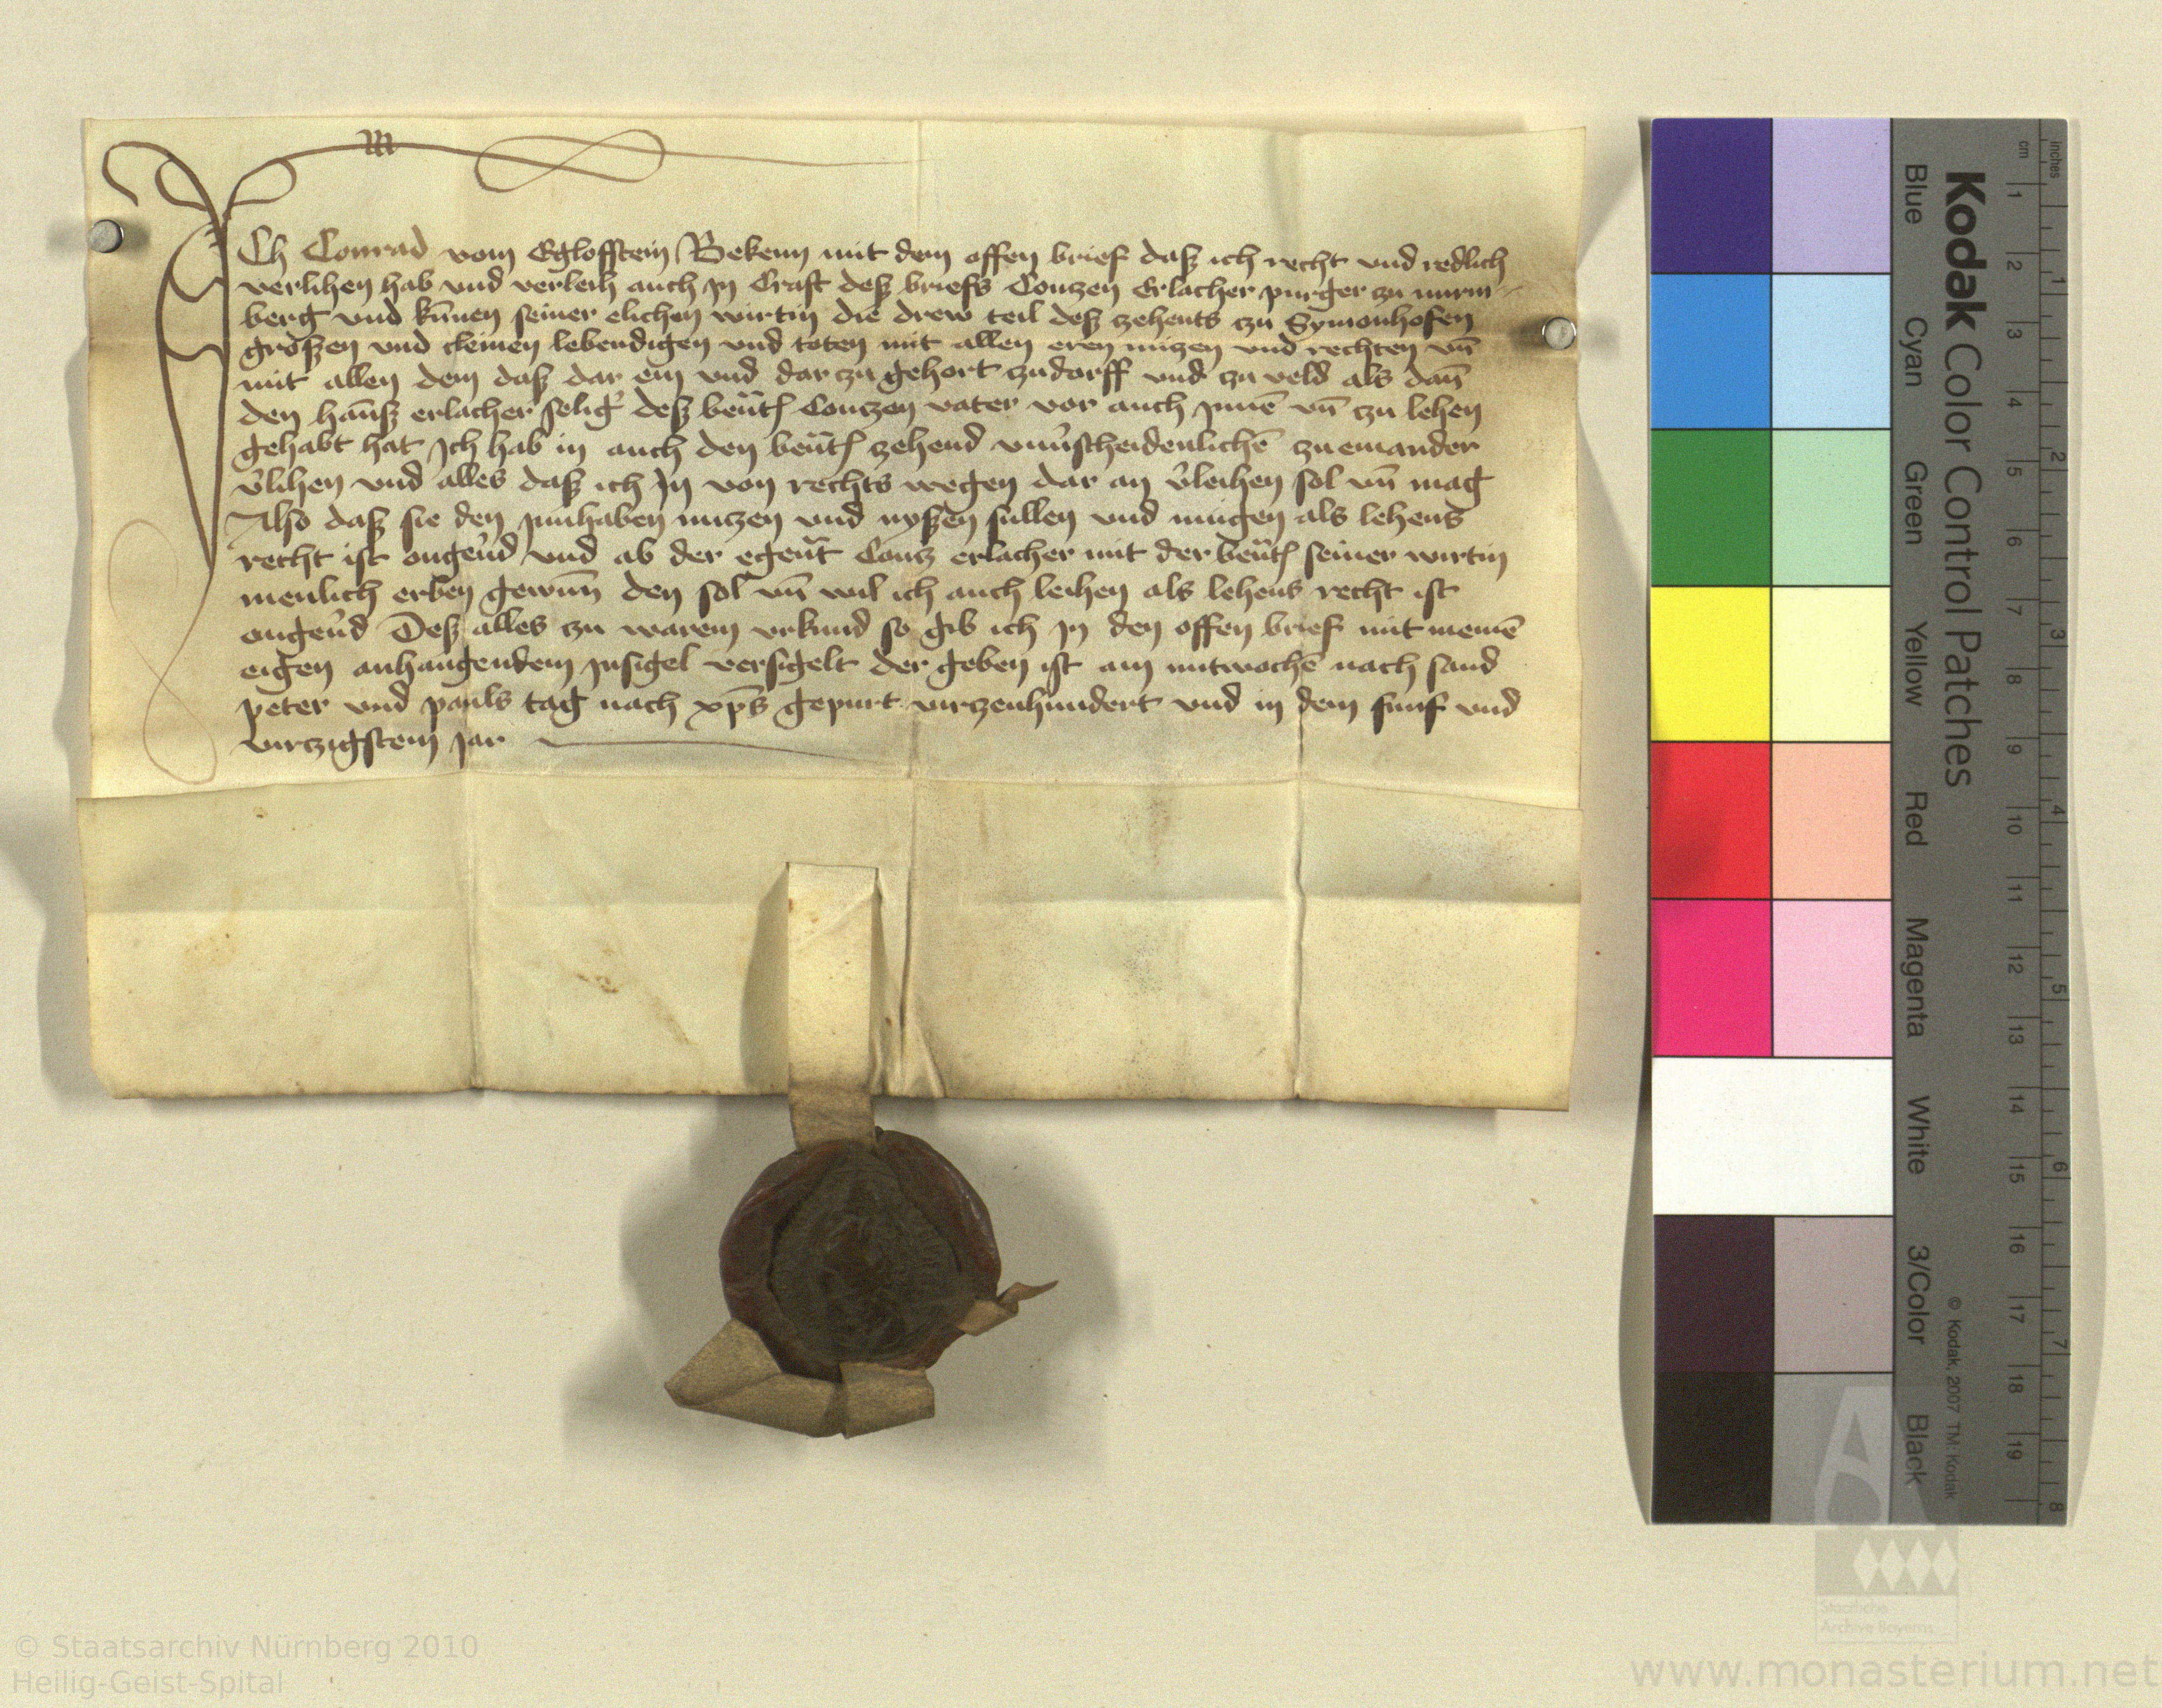 ICh Conrad vom Eglofstein Bekenn mit dem offen brief dasz ich recht und redlich
verlihen hab und verleih auch jn Craft desz briefs Contzen Erlacher purger zu nurm
berg und kunnen seiner elichen wirtin die drew teil desz zehents zu Symonhofen
groszen und cleinen lebendigen und toten mit allen eren nutzen und rechten vn̄
mit allen dem dasz dar ein und dar zu gehort zudorff und zu veld als dan̄
den han̄sz erlacher selig desz ben̄t Contzen vater vor auch jnnē vn̄ zu lehen
gehabt hat Ich hab in auch den ben̄t zehend vnu̕scheidenlichē zu einander
v̕lihen und alles dasz ich Jn von rechts wegen dar an v̕leihen sol vn̄ mag
Also dasz sie den jnnhaben nutzen und nyszen sullen und mugen als lehens
recht ist ongeu̕d und ab der egen̄t Contz erlacher mit der ben̄t seiner wirtin
menlich erben gewun̄ den sol vn̄ wil ich auch leihen als lehens recht ist
ongeu̕d Desz alles zu warem vrkund so gib ich jn den offen brief mit meinē
eigen anhangendem jnsigel versigelt der geben ist am mitwochē nach sand
peter und pauls tag nach xp̄s gepurt virzenhundert und in dem funf und
virczigstem jar
Kodak Color Control Patches
© Kodak, 2007 TM: Kodak
Blue Cyan Green Yellow Red Magenta White 3/Color Black
cm 1 2 3 4 5 6 7 8 9 10 11 12 13 14 15 16 17 18 19
inches 1 2 3 4 5 6 7 8
Staatliche
Archive Bayerns
© Staatsarchiv Nürnberg 2010
Heilig-Geist-Spital
www.monasterium.net